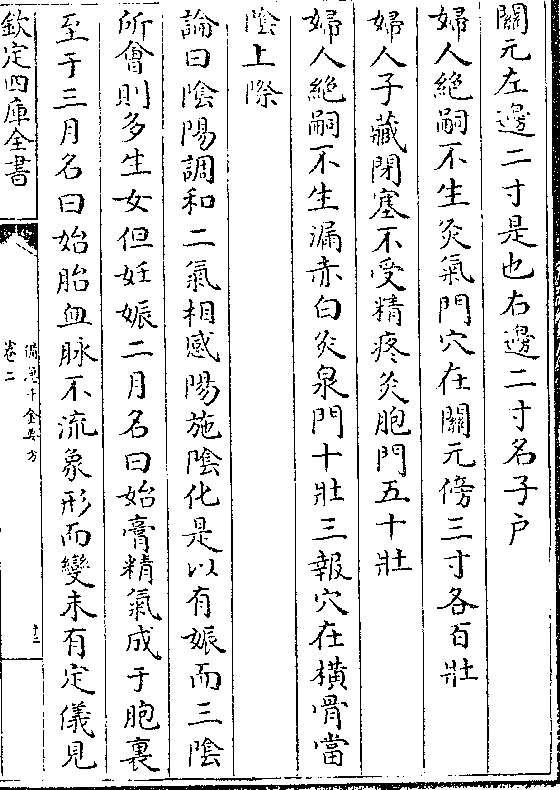 關元左邊二寸是也右邊二寸名子户
婦人絶嗣不生灸氣門穴在關元傍三寸各百壯
婦人子藏閉塞不受精疼灸胞門五十壯
婦人絶嗣不生漏赤白灸泉門十壯三報穴在横骨當
陰上際
論曰陰陽調和二氣相感陽施隂化是以有娠而三隂
所會則多生女但妊娠二月名曰始膏精氣成于胞裏
至于三月名曰始胎血脉不流象形而變未有定儀見
欽定四庫全書
備急千金要方
卷二